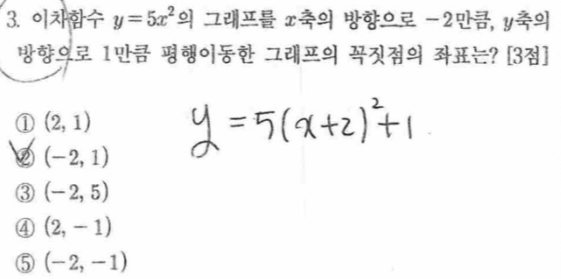 3. 이차함수 y=5x²의 그래프를 x축의 방향으로 -2만큼, y축의
방향으로 1만큼 평행이동한 그래프의 꼭짓점의 좌표는? [3점]
① (2, 1)
y=5(x+2)²+1
② (-2, 1)
③ (-2, 5)
④ (2, -1)
⑤ (-2, -1)